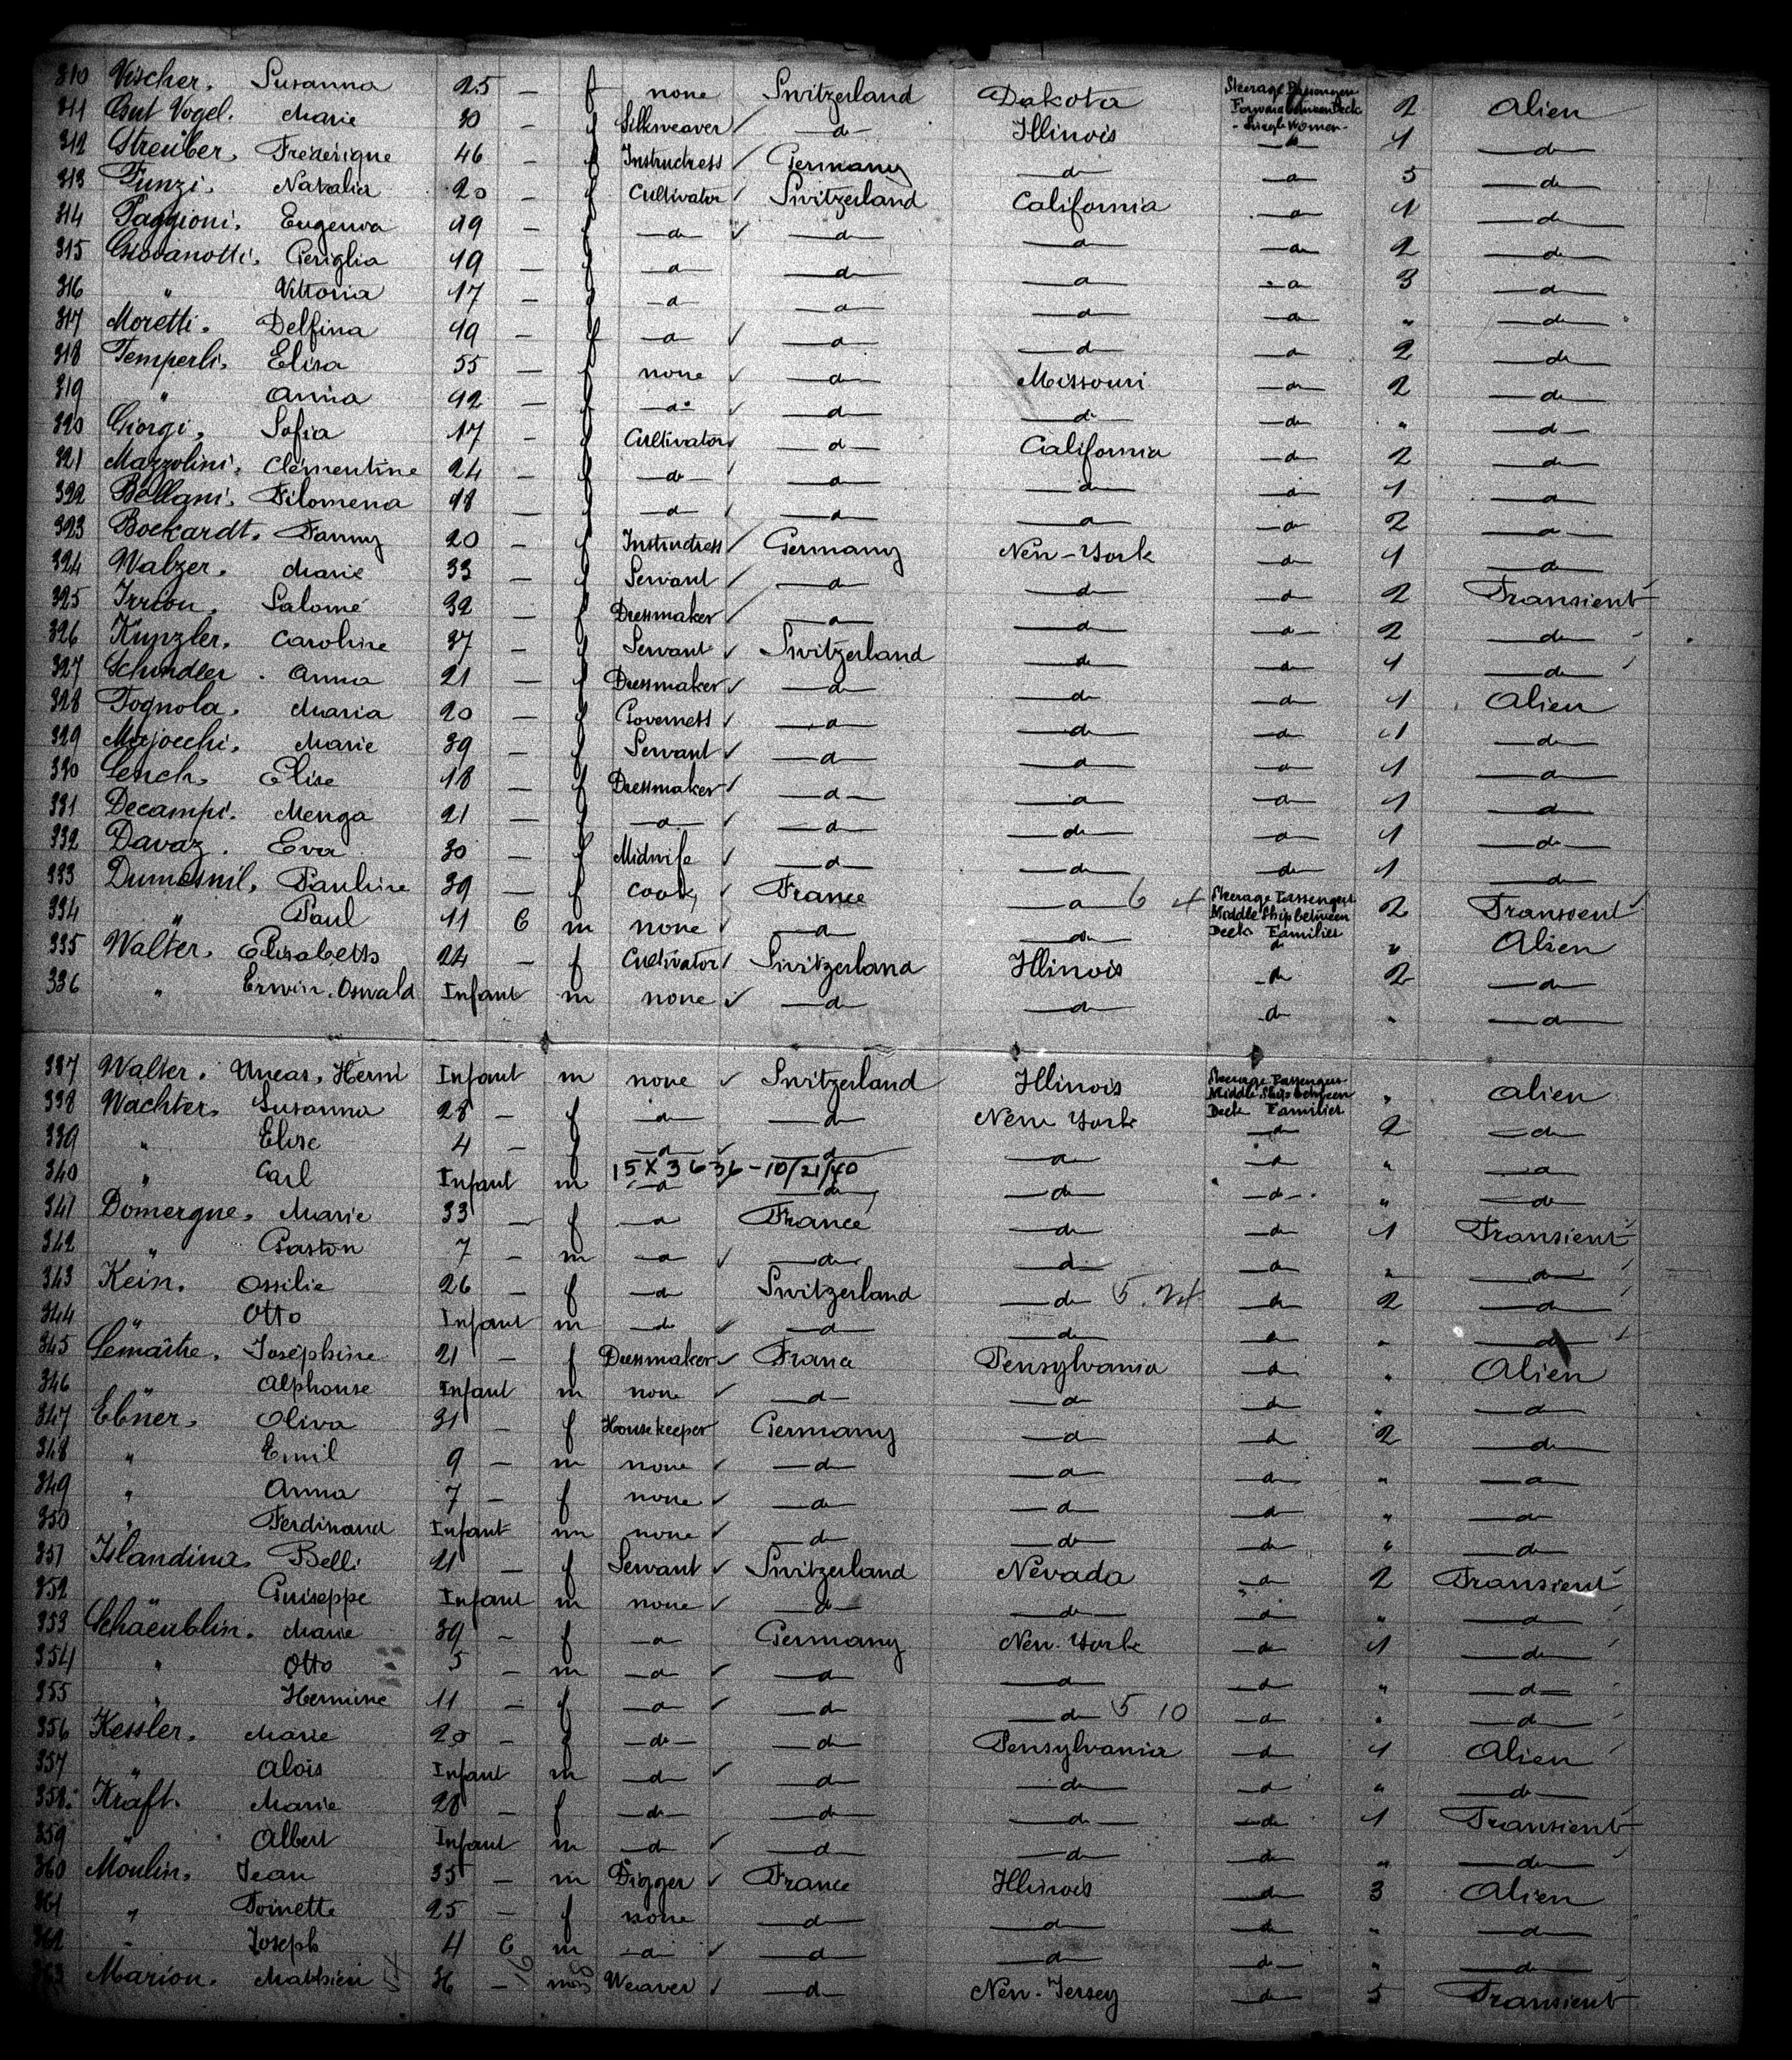 310 Vischer. Susanna 25 — f none Switzerland Dakota Steerage Passengers Forward between Deck - Single women - 2 Alien
311 Gut Vogel. Marie 30 — f Silkweaver —d— Illinois —d— 1 —d—
312 Streuber. Frédérique 46 — f Instructress Germany —d— —d— 5 —d—
313 Funzi. Natalia 20 — f Cultivator Switzerland California —d— 1 —d—
314 Paggioni. Eugenia 19 — f —d— —d— —d— —d— 2 —d—
315 Giovanotti. Ceriglia 19 — f —d— —d— —d— —d— 3 —d—
316 " Vittoria 17 — f —d— —d— —d— —d— " —d—
317 Moretti. Delfina 19 — f —d— —d— —d— —d— 2 —d—
318 Temperli. Elisa 55 — f none —d— Missouri —d— 2 —d—
319 " Anna 12 — f —d— —d— —d— —d— " —d—
320 Giorgi. Sofia 17 — f Cultivator —d— California —d— 2 —d—
321 Mazzolini. Clementine 24 — f —d— —d— —d— —d— 1 —d—
322 Bellani. Filomena 18 — f —d— —d— —d— —d— 2 —d—
323 Bockardt. Fanny 20 — f Instructress Germany New-York —d— 1 —d—
324 Walzer. Marie 33 — f Servant —d— —d— —d— 2 Transient
325 Irrion. Salomé 32 — f Dressmaker —d— —d— —d— 2 —d—
326 Künzler. Caroline 37 — f Servant Switzerland —d— —d— 1 —d—
327 Schindler. Anna 21 — f Dressmaker —d— —d— —d— 1 Alien
328 Tognola. Maria 20 — f Governess —d— —d— —d— 1 —d—
329 Majocchi. Marie 39 — f Servant —d— —d— —d— 1 —d—
330 Lench. Elise 18 — f Dressmaker —d— —d— —d— 1 —d—
331 Decampi. Menga 21 — f —d— —d— —d— —d— 1 —d—
332 Davaz. Eva 30 — f Midwife —d— —d— —d— 1 —d—
333 Dumesnil. Pauline 39 — f Cook France —d— 6 Steerage Passengers Middle Ship between Deck Families 2 Transient
334 " Paul 11 6 m none —d— —d— d " Alien
335 Walter. Elisabetts 24 — f Cultivator Switzerland Illinois —d— 2 —d—
336 " Erwin. Oswald Infant m none —d— —d— —d— " —d—
337 Walter. Uneas. Herni Infant m none Switzerland Illinois Steerage Passengers Middle Ship between Deck Families " Alien
338 Wachter. Susanna 28 — f —d— —d— New York —d— 2 —d—
339 " Elise 4 — f —d— —d— —d— —d— " —d—
15 X 3636 - 10/21/40
340 " Carl Infant m —d— —d— —d— —d— " —d—
341 Domergue. Marie 33 — f —d— France —d— —d— 1 Transient
342 " Gaston 7 — m —d— —d— —d— —d— " —d—
343 Kein. Ossilie 26 — f —d— Switzerland —d— 5. —d— 2 —d—
344 " Otto Infant m —d— —d— —d— —d— " —d—
345 Lemaître. Joséphine 21 — f Dressmaker France Pensylvania —d— " Alien
346 " Alphonse Infant m none —d— —d— —d— " —d—
347 Ebner. Oliva 31 — f Housekeeper Germany —d— —d— 2 —d—
348 " Emil 9 — m none —d— —d— —d— " —d—
349 " Anna 7 — f none —d— —d— —d— " —d—
350 " Ferdinand Infant m none —d— —d— —d— " —d—
351 Islandina. Belli 21 — f Servant Switzerland Nevada —d— 2 Transient
352 " Guiseppe Infant m none —d— —d— —d— " —d—
353 Schäeublin. Marie 39 — f —d— Germany New-York —d— 1 —d—
354 " Otto 5 — m —d— —d— —d— —d— " —d—
355 " Hermine 11 — f —d— —d— —d— 5 10 —d— " —d—
356 Kessler. Marie 20 — f —d— —d— Pensylvania —d— 1 Alien
357 " Alois Infant m —d— —d— —d— —d— " —d—
358 Kraft. Marie 28 — f —d— —d— —d— —d— 1 Transient
359 " Albert Infant m —d— —d— —d— —d— " —d—
360 Moulin. Jean 35 — m Digger France Illinois —d— 3 Alien
361 " Toinette 25 — f none —d— —d— —d— " —d—
362 " Joseph 4 6 m —d— —d— —d— —d— " —d—
363 Marion. Mathieu 36 — m Weaver —d— New-Jersey —d— 5 Transient